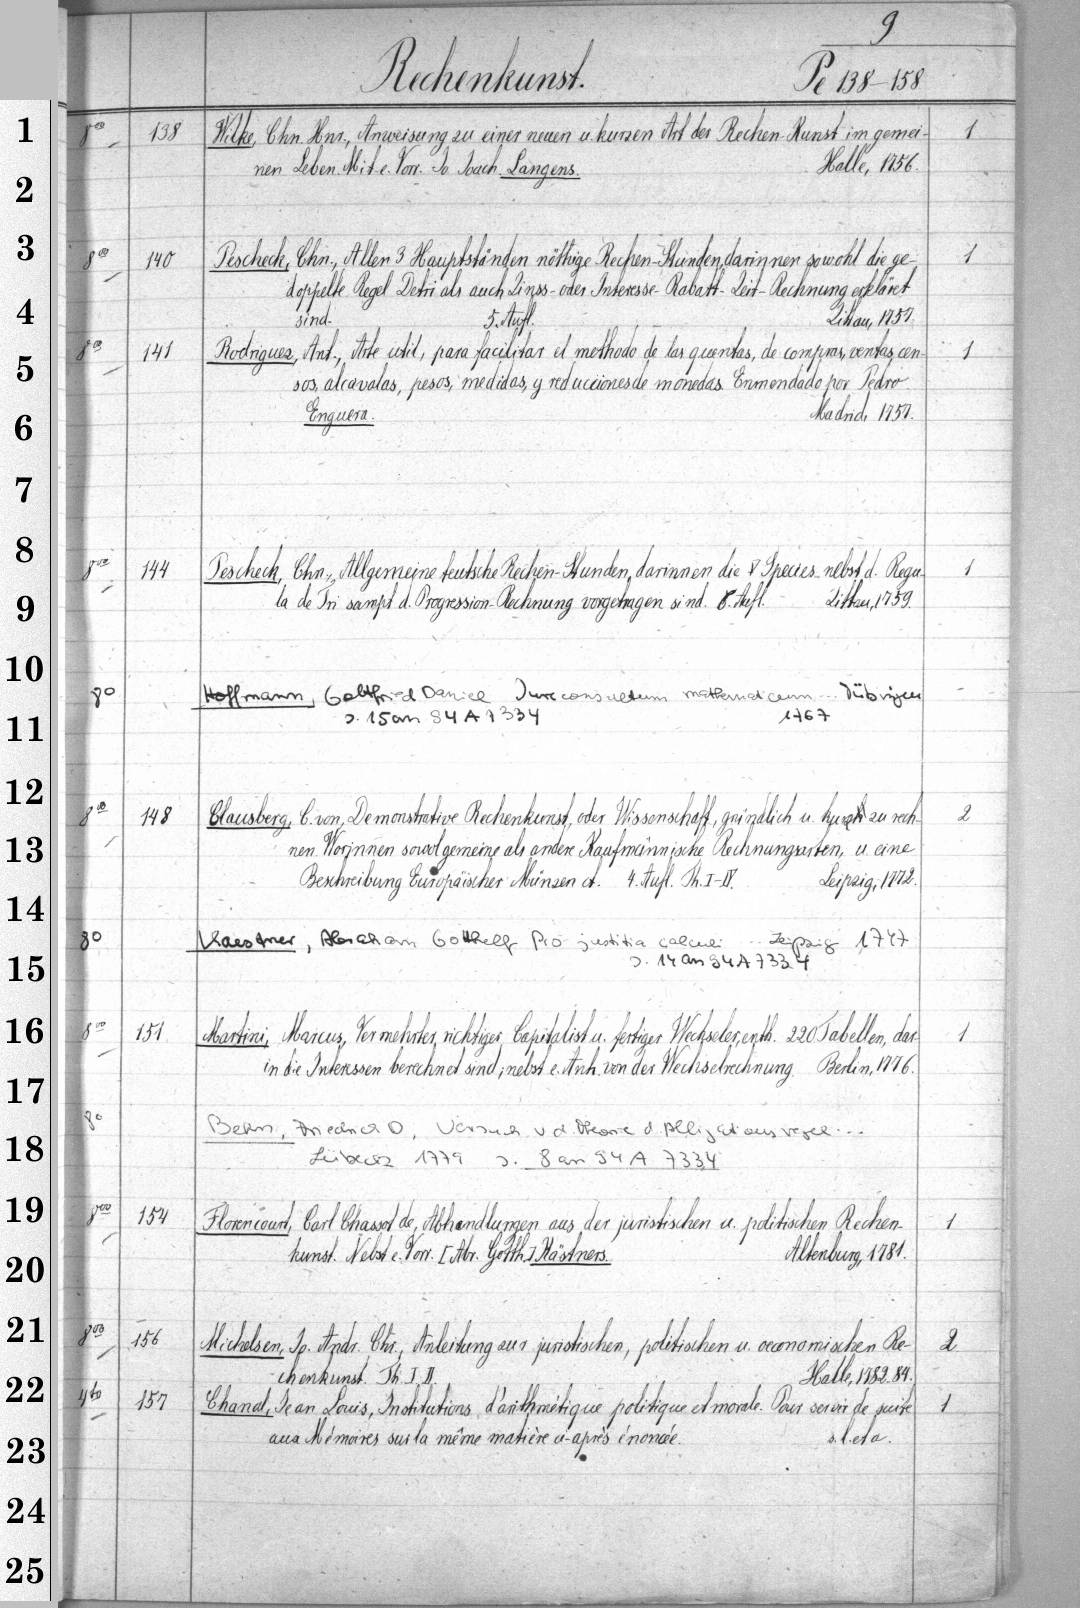 9
Rechenkunst. Pe 138-158
1 8vo 138 Wilke, Chn. Hnr., Anweisung zu einer neuen u. kurzen Art der Rechen-Kunst im gemei- 1
2 nen Leben. Mit e. Vorr. Jo Joach. Langens. Halle, 1756.
3 8vo 140 Pescheck, Chn., Allen 3 Hauptständen nöthige Rechen-Stunden, darinnen sowohl die ge- 1
doppelte Regel Detri als auch Zinss- oder Interesse- Rabatt- Zeit- Rechnung erkläret
4 sind. 5. Aufl. Zittau, 1757.
5 8vo 141 Rodriguez, Ant., Arte util, para facilitar el methodo de las quentas, de compras, ventas, cen- 1
sos, alcavalas, pesos, medidas, y reducciones de monedas. Enmendado por Pedro
6 Enguera. Madrid, 1757.
7
8 8vo 144 Pescheck, Chn., Allgemeine teutsche Rechen-Stunden, darinnen die Species nebst d. Regu- 1
9 la de Tri sampt d. Progression-Rechnung vorgetragen sind. 8. Aufl. Zittau, 1759.
10 8o Hoffmann, Gottfried Daniel Jureconsultum mathematicum... Tübingen
11 s. 15 an 94 A 7334 1767
12 8vo 148 Clausberg, C. von, Demonstrative Rechenkunst, oder Wissenschaft, gründlich u. kurz zu rech- 2
13 nen. Worinnen sowol gemeine als andere Kaufmännische Rechnungsarten, u. eine
Beschreibung Europäischer Münzen ct. 4. Aufl. Th. I-IV. Leipzig, 1772.
14 8o Kaestner, Abraham Gotthelf Pro justitia calculi ... Leipzig 1747
15 s. 14 an 94 A 7334
16 8vo 151 Martini, Marcus, Vermehrter, richtiger Capitalist u. fertiger Wechseler, enth. 220 Tabellen, dar- 1
in die Interessen berechnet sind; nebst e. Anh. von der Wechselrechnung. Berlin, 1776.
17 8o Behn, Friedrich D., Versuch v. d. Theorie d. Alligationsregel...
18 Lübeck 1779 s. 8 an 94 A 7334
19 8vo 154 Florencourt, Carl Chassot de, Abhandlungen aus der juristischen u. politischen Rechen- 1
20 kunst. Nebst e. Vorr. [Abr. Gotth.] Kästners. Altenburg, 1781.
21 8vo 156 Michelsen, Jo. Andr. Chr., Anleitung zur juristischen, politischen u. oeconomischen Re- 2
chenkunst. Th. I. II. Halle, 1782. 84.
22 4to 157 Chanal, Jean Louis, Institutions d'arithmétique politique et morale. Pour servir de suite 1
23 aux Mémoires sur la même matière ci-après énoncée. s. l. et a.
24
25